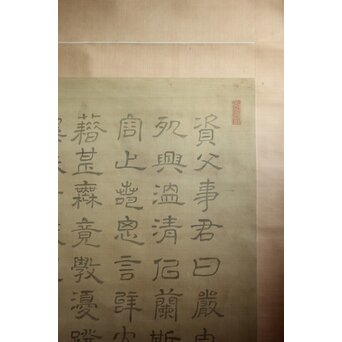 資父事君曰嚴
夙興溫清佀蘭斯
容止若思言辭安
藉甚無竟斆優登